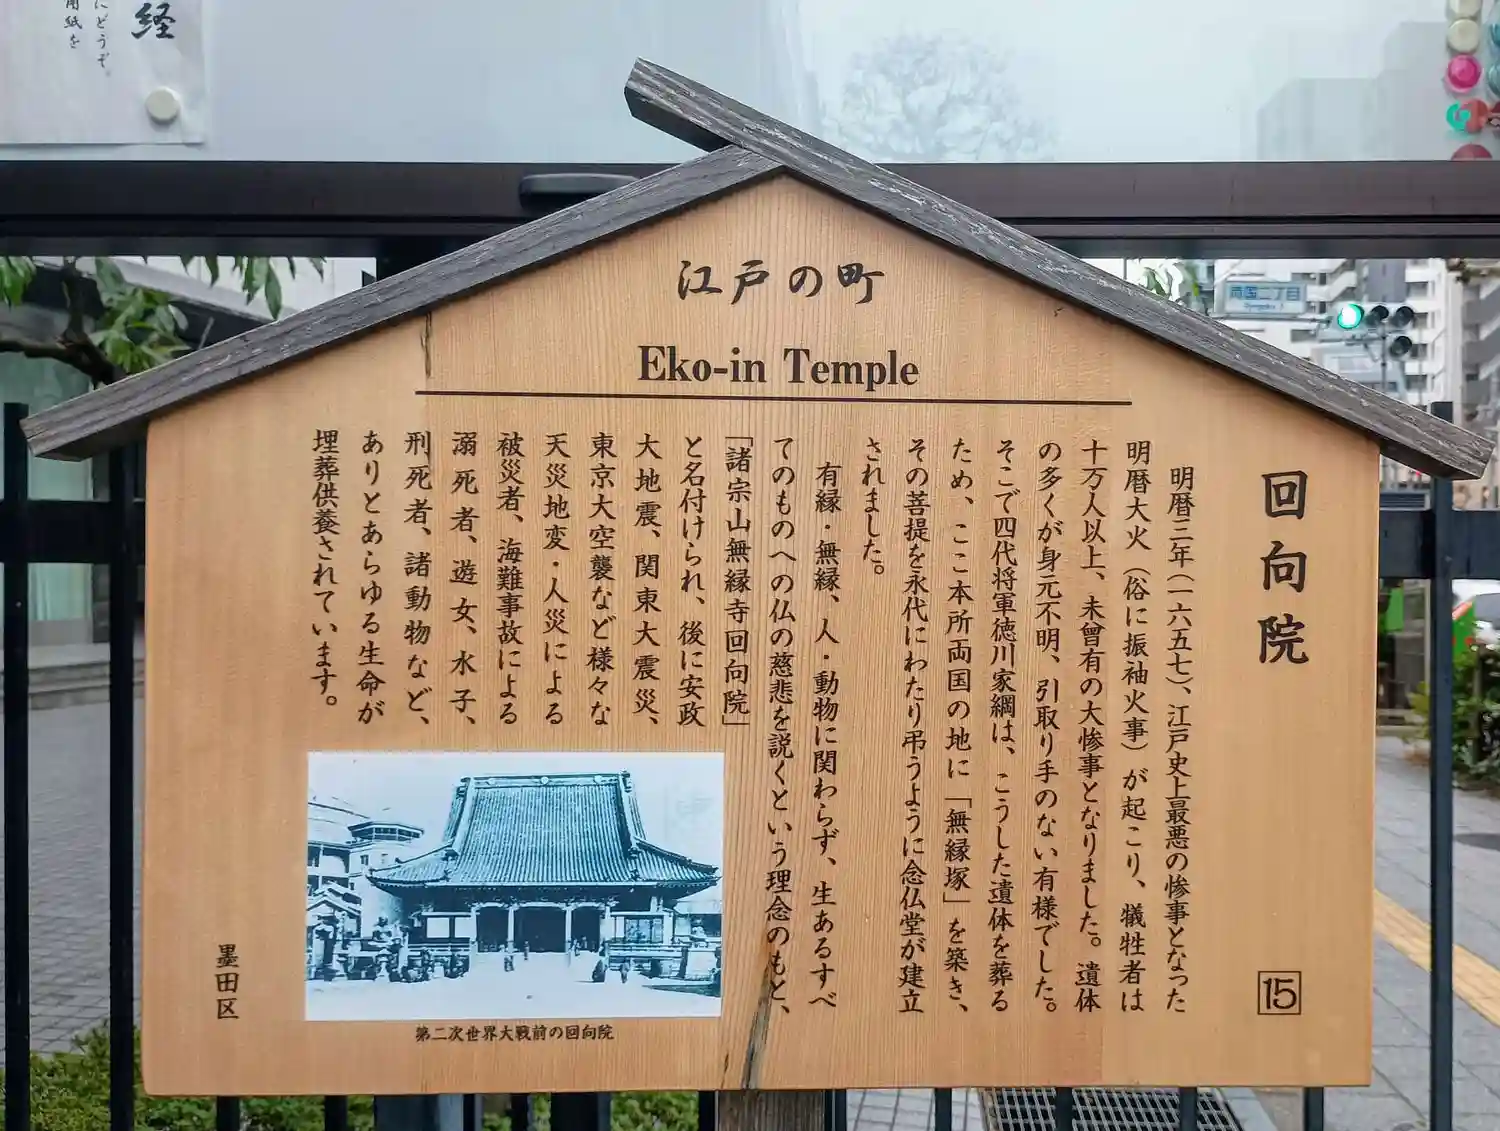 経
にどうぞ。
用紙を
両国二丁目
江戸の町
Eko-in Temple
回向院
15
明暦三年(一六五七)、江戸史上最悪の惨事となった
明暦大火(俗に振袖火事)が起こり、犠牲者は
十万人以上、未曾有の大惨事となりました。遺体
の多くが身元不明、引取り手のない有様でした。
そこで四代将軍徳川家綱は、こうした遺体を葬る
ため、ここ本所両国の地に「無縁塚」を築き、
その菩提を永代にわたり弔うように念仏堂が建立
されました。
有縁・無縁、人・動物に関わらず、生あるすべ
てのものへの仏の慈悲を説くという理念のもと、
「諸宗山無縁寺回向院」
と名付けられ、後に安政
大地震、関東大震災、
東京大空襲など様々な
天災地変・人災による
被災者、海難事故による
溺死者、遊女、水子、
刑死者、諸動物など、
ありとあらゆる生命が
埋葬供養されています。
第二次世界大戦前の回向院
墨田区